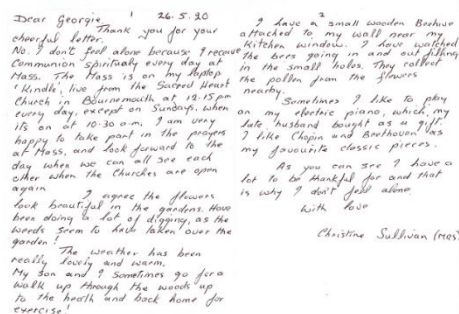 1
Dear Georgie, 26.5.20
Thank you for your
cheerful letter.
No. I don't feel alone because I receive
Communion spiritualy every day at
Mass. The Mass is on my laptop
'Kindle', live from the Sacred Heart
Church in Bournemouth at 12.15 pm
every day, except on Sundays, when
its on at 10.30 a.m. I am very
happy to take part in the prayers
at Mass, and look forward to the
day when we can all see each
other when the Churches are open
again
I agree the flowers
look beautiful in the gardens. Have
been doing a lot of digging, as the
weeds seem to have taken over the
garden!
The weather has been
really lovely and warm.
My son and I sometimes go for a
walk up through the woods up
to the heath and back home for
exercise!
2
I have a small wooden Beehive
attached to my wall near my
Kitchen window. I have watched
the bees going in and out filling
in the small holes. They collect
the pollen from the flowers
nearby.
Sometimes I like to play
on my electric piano, which, my
late husband bought as a gift.
I like Chopin and Beethoven as
my favourite classic pieces.
As you can see I have a
lot to be thankful for and that
is why I don't feel alone.
With love
Christine Sullivan (MRS)